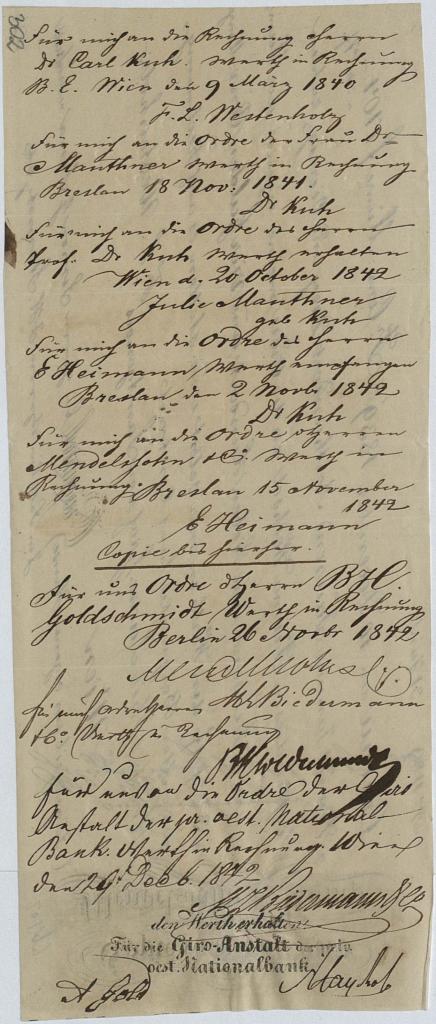 Für mich an die Rechnung Herrn
Dr Carl Kuh. Werth in Rechnung
B. E. Wien den 9 März 1840
F. L. Westenholz
Für mich an die Ordre der Frau Dr
Mauthner Werth in Rechnung
Breslau 18 Nov: 1841.
Dr Kuh
Für mich an die Ordre des Herrn
Prof. Dr Kuh Werth erhalten
Wien d. 20 October 1842
Julie Mauthner
geb Kuh
Für mich an die Ordre des Herrn
E Heimann Werth empfangen
Breslau den 2 Novbr 1842
Dr Kuh
Für mich an die Ordre Herren
Mendelssohn & C. Werth in
Rechnung. Breslau 15 November
1842
E Heimann
Copie bis hierher.
Für uns Ordre Herrn B H
Goldschmidt Werth in Rechnung
Berlin 26 Novbr 1842
Mendelssohn
für mich Ordre Herren Biedermann
& Co. Werth in Rechnung
für uns an die Ordre der Giro
Anstalt der pr. oest. National
Bank. Werth in Rechnung. Wien
den 29 Dec 1842
Biedermann & Co
den Werth erhalten
Für die Giro-Anstalt der priv.
oest. Nationalbank